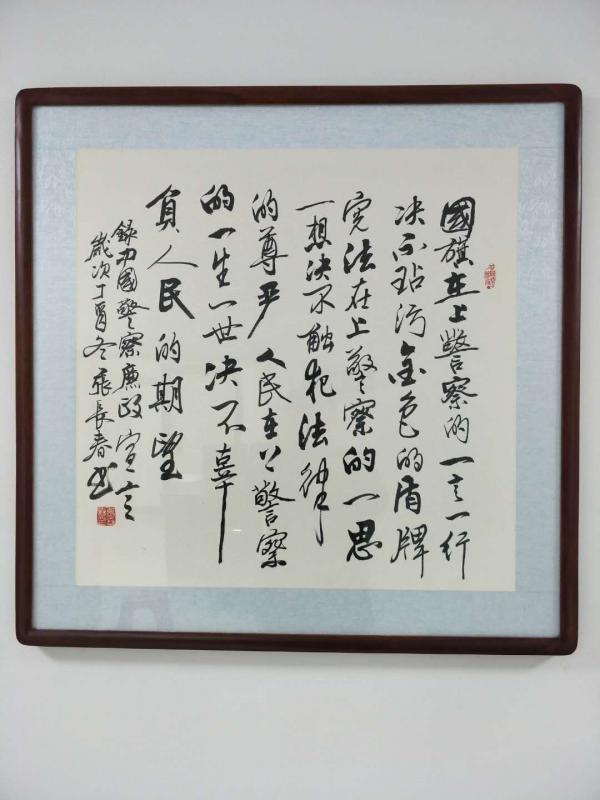 國旗在上警察的一言一行
决不玷污金色的盾牌
宪法在上警察的一思
一想决不触犯法律
的尊严人民在上警察
的一生一世决不辜
負人民的期望
錄中國警察廉政宣言
歲次丁酉冬張長春书